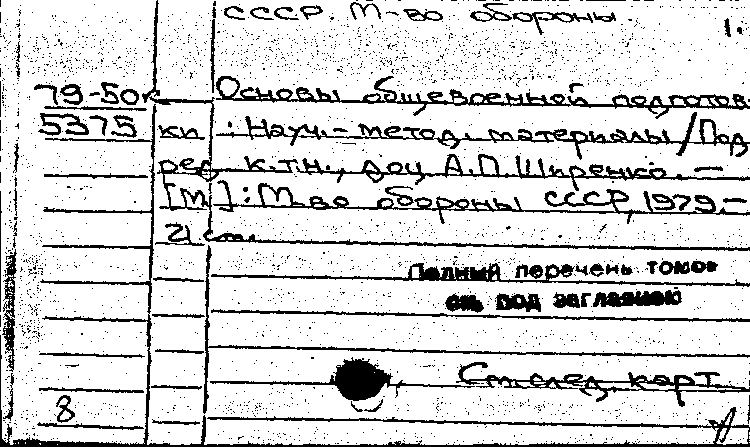 СССР. М-во обороны.
1.
79-50к Основы общевоенной подготов-
5375 ки : Науч.-метод. материалы / Под
ред. к.т.н., доц. А.П. Ширенко. —
[М] : М-во обороны СССР, 1979.—
21 см.
Полный перечень томов
см. под заглавием
См. след. карт.
8